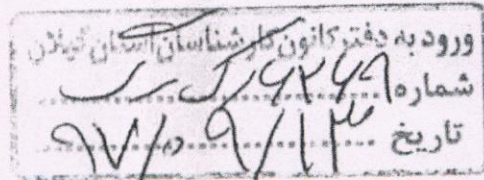 ورود به دفتر کانون کارشناسان استان گیلان
شماره ۶۲۶۹
تاریخ ۹۷/۰۹/۱۳